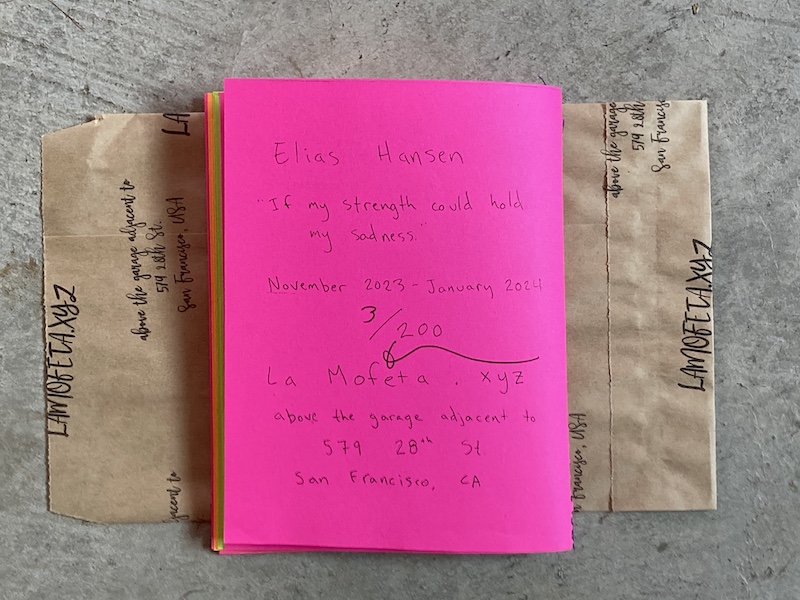 LA
above the garage adjacent to
579 28th St.
San Francisco, USA
LAMOFETA.XYZ
jacent to
Elias Hansen
"If my strength could hold
my sadness."
November 2023 - January 2024
3/200
La Mofeta . xyz
above the garage adjacent to
579 28th St.
San Francisco, CA
above the garage
579 28th
San Francisc
LAMOFETA.XYZ
n Francisco, USA